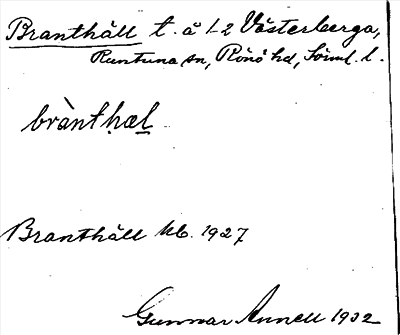 Branthäll t. å 1-2 Västerberga,
Runtuna sn, Rönö hd, Söml. l.
brànt hæl
Branthäll kb. 1927
Gunnar Annell 1932